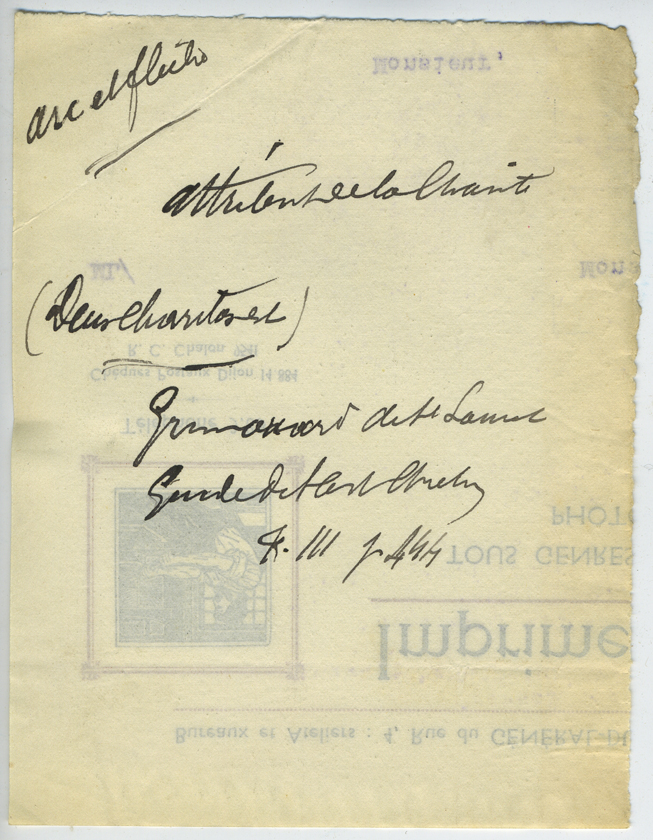 arc et flèche
attribut de la Charité
(Deus Charitas est)
Grimouard de St Laurent
Guide de l'art Chrétien
t. III p 444
Monsieur,
ML/
Mons
R. C. Chalon
Chèques Postaux Dijon 14 884
Téléphone
PHOTO
TOUS GENRES
Imprime
Bureaux et Ateliers : 4, Rue du GÉNÉRAL DU